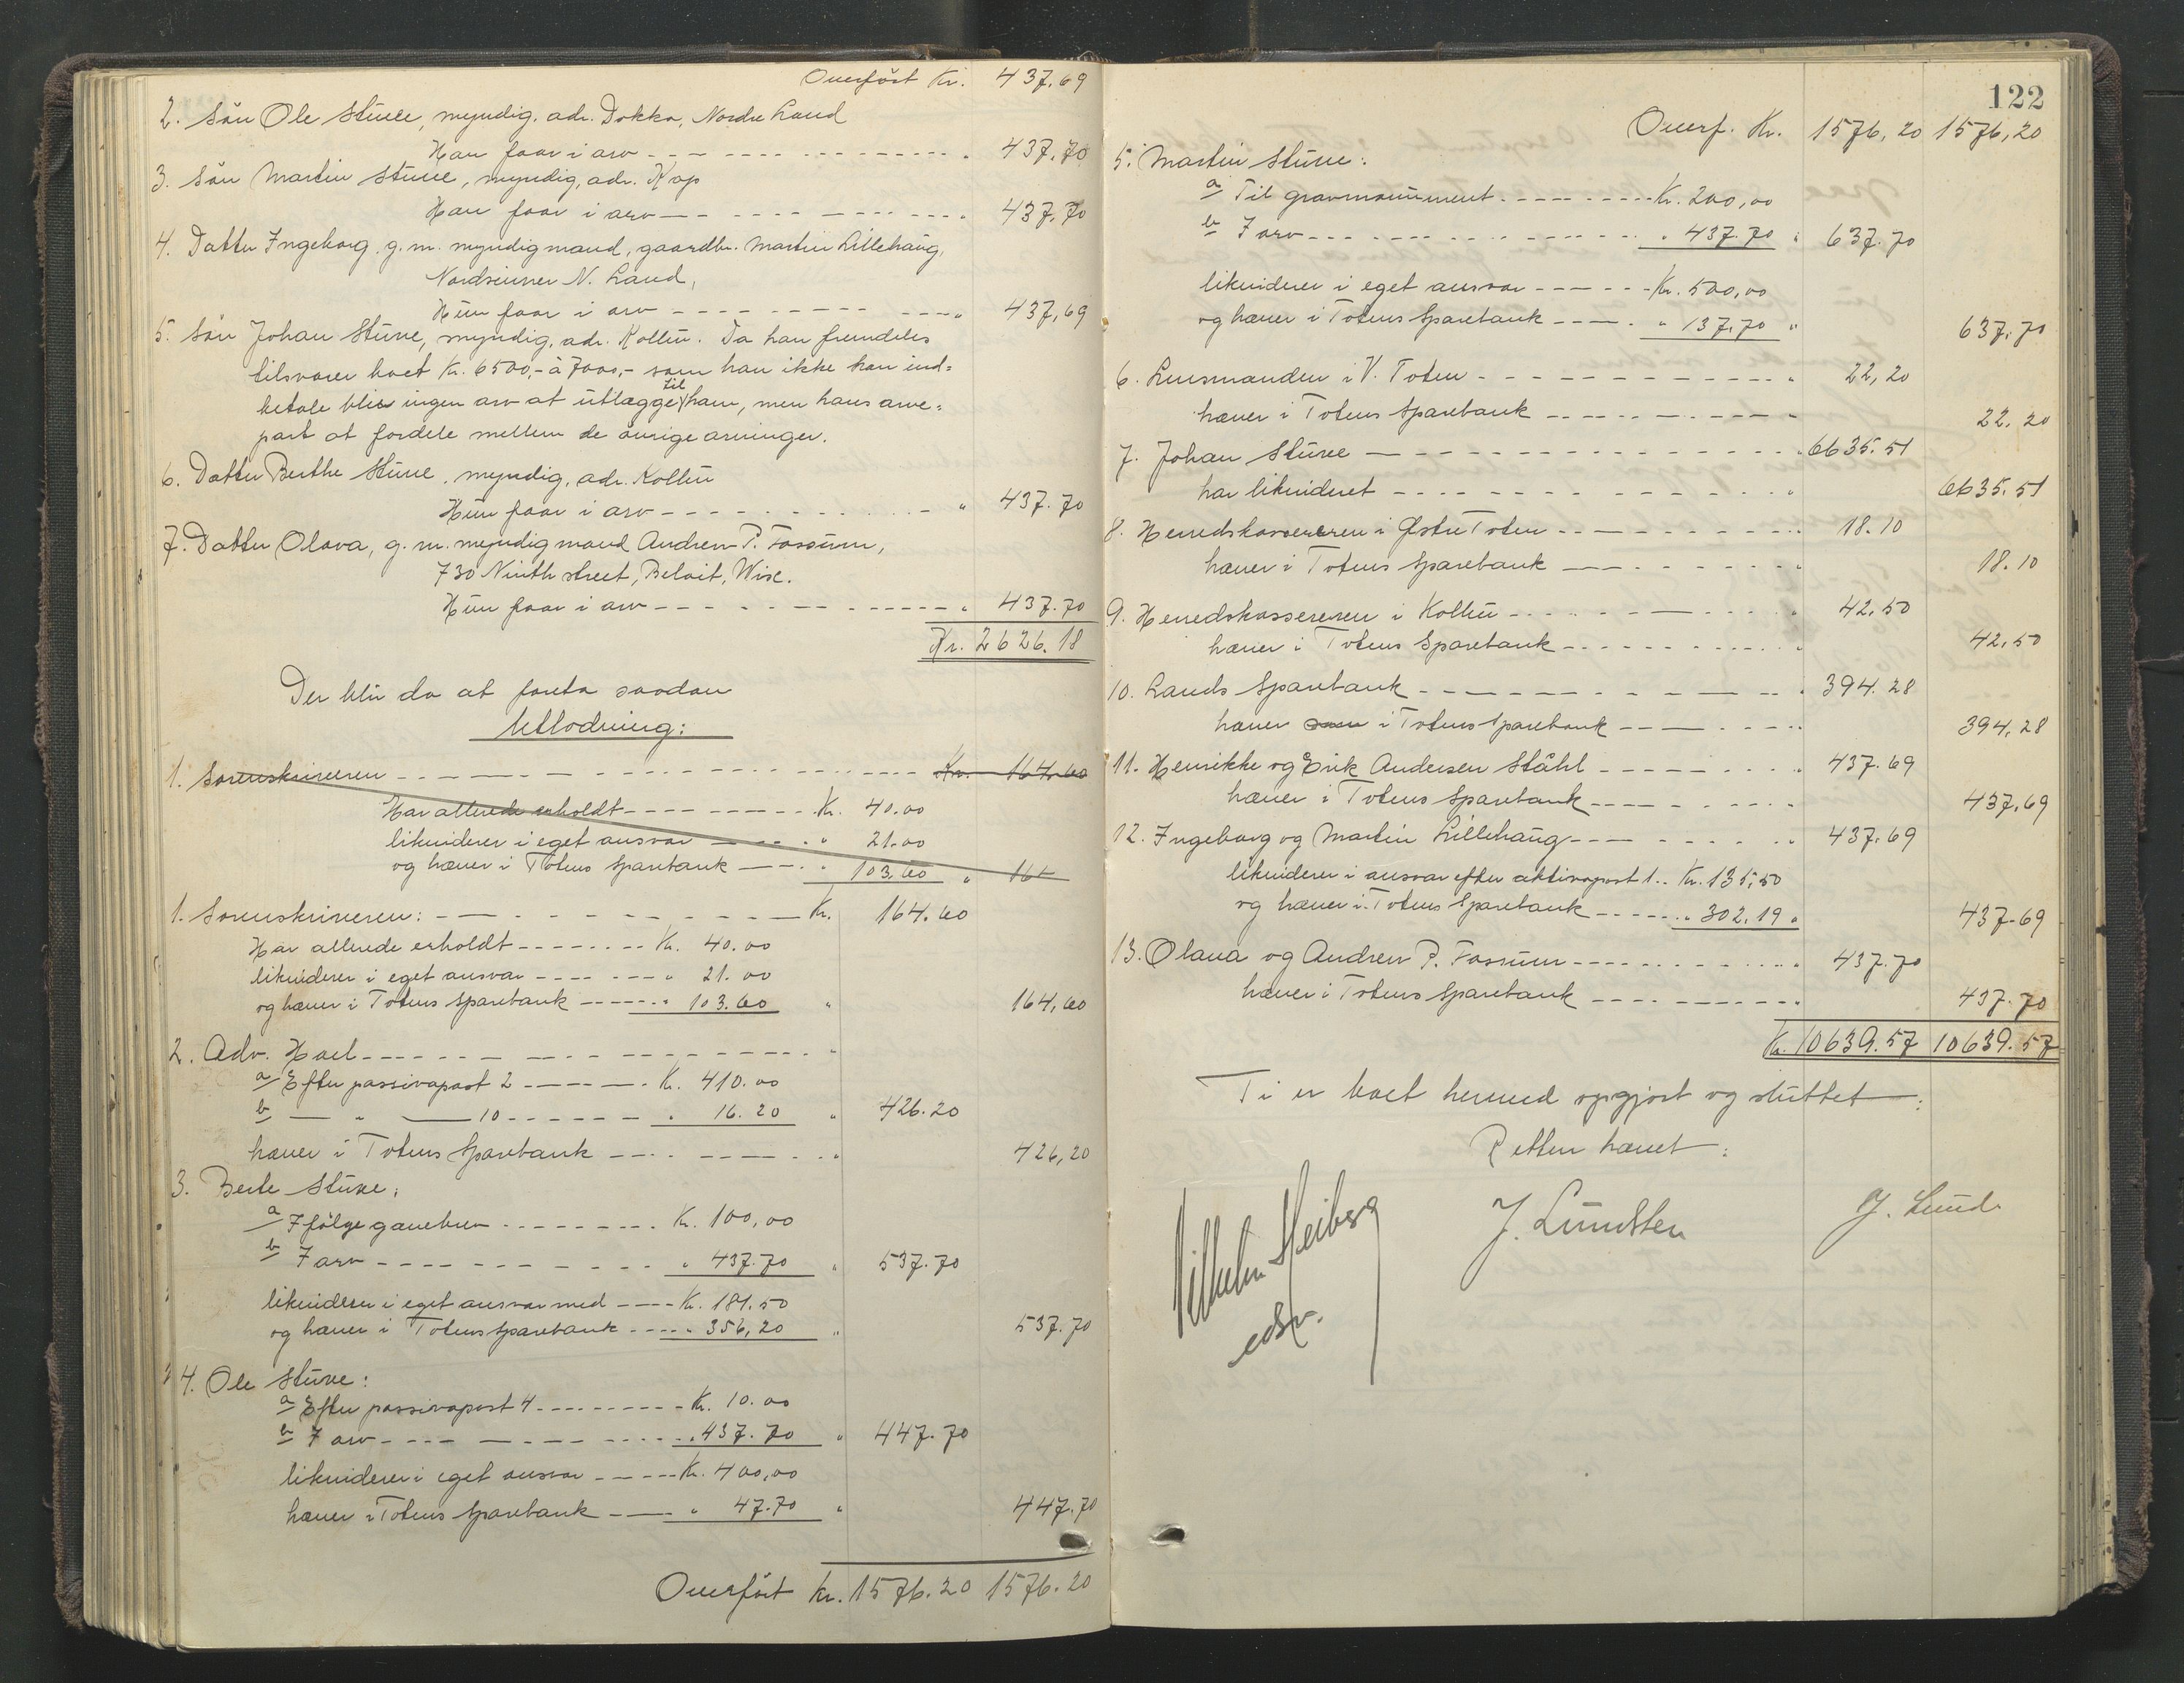 Overført Kr. 437,69
2. Søn Ole Stuve, myndig, adr. Dokka, Nordre Land
Han faar i arv - - - - " 437.70
3. Søn Martin Stuve, myndig, adr. Kap
Han faar i arv - - - - " 437.70
4. Datter Ingeborg, g. m. myndig mand, gaardbr. Martin Lillehaug,
Nordsinnen N. Land,
Hun faar i arv - - - - " 437,69
5. Søn Johan Stuve, myndig, adr. Kolbu. Da han fremdeles
tilsvarer boet Kr. 6500,- à 7000,- som han ikke kan ind=
betale blir ingen arv at utlægge til ham, men hans arve=
part at fordele mellem de øvrige arvinger.
6. Datter Berthe Stuve, myndig, adr. Kolbu
Hun faar i arv - - - - " 437.70
7. Datter Olava, g. m. myndig mand Andrew P. Fossum,
730 Ninth street, Beloit, Wisc.
Hun faar i arv - - - - " 437.70
Kr. 2626.18
Der blir da at foreta saadan
Utlodning:
1. Sorenskriveren - - - - Kr. 164.60
Har allerede erholdt - - - - Kr. 40.00
likviderer i eget ansvar - - - - " 21.00
og hæver i Totens Sparebank - - - " 103.60 " 164
1. Sorenskriveren: - - - - Kr. 164.60
Har allerede erholdt - - - - Kr. 40.00
likviderer i eget ansvar - - - - " 21.00
og hæver i Totens Sparebank - - - " 103.60 " 164,60
2. Adv. Hoel - - - - "
a Efter passivapost 2 - - - - Kr. 410.00
b — " — 10 - - - - " 16.20 " 426.20
hæver i Totens Sparebank - - - - " 426,20
3. Berte Stuve:
a Ifølge gavebrev - - - - Kr. 100,00
b I arv - - - - " 437.70 " 537.70
likviderer i eget ansvar med - - - Kr. 181.50
og hæver i Totens Sparebank - - - " 356,20 " 537.70
4. Ole Stuve:
a Efter passivapost 4 - - - - Kr. 10.00
b I arv - - - - " 437.70 " 447.70
likviderer i eget ansvar - - - - Kr. 400,00
hæver i Totens Sparebank - - - " 47.70 " 447.70
Overført Kr. 1576.20 1576.20
122
Overf. Kr. 1576,20 1576,20
5. Martin Stuve:
a Til gravmonument - - - - Kr. 200,00
b I arv - - - - " 437.70 " 637.70
likviderer i eget ansvar - - - - Kr. 500,00
og hæver i Totens Sparebank - - - " 137,70 " 637,70
6. Lensmanden i V. Toten - - - - " 22,20
hæver i Totens Sparebank - - - - " 22.20
7. Johan Stuve - - - - " 6635.51
har likvideret - - - - " 6635.51
8. Herredskassereren i Østre Toten - - - - " 18.10
hæver i Totens Sparebank - - - - " 18.10
9. Herredskassereren i Kolbu - - - - " 42.50
hæver i Totens Sparebank - - - - " 42,50
10. Lands Sparebank - - - - " 394.28
hæver i Totens Sparebank - - - - " 394,28
11. Henrikke og Erik Andersen Ståhl - - - - " 437.69
hæver i Totens Sparebank - - - - " 437,69
12. Ingeborg og Martin Lillehaug - - - - " 437,69
likviderer i ansvar efter aktivapost 1 - - Kr. 135,50
og hæver i Totens Sparebank - - - - " 302,19 " 437.69
13. Olava og Andrew P. Fossum - - - - " 437.70
hæver i Totens Sparebank - - - - " 437.70
Kr. 10639.57 10639.57
Ti er boet hermed opgjort og sluttet:
Retten hævet:
Vilhelm Heiberg J. Lundsten J. Lund
edsv.